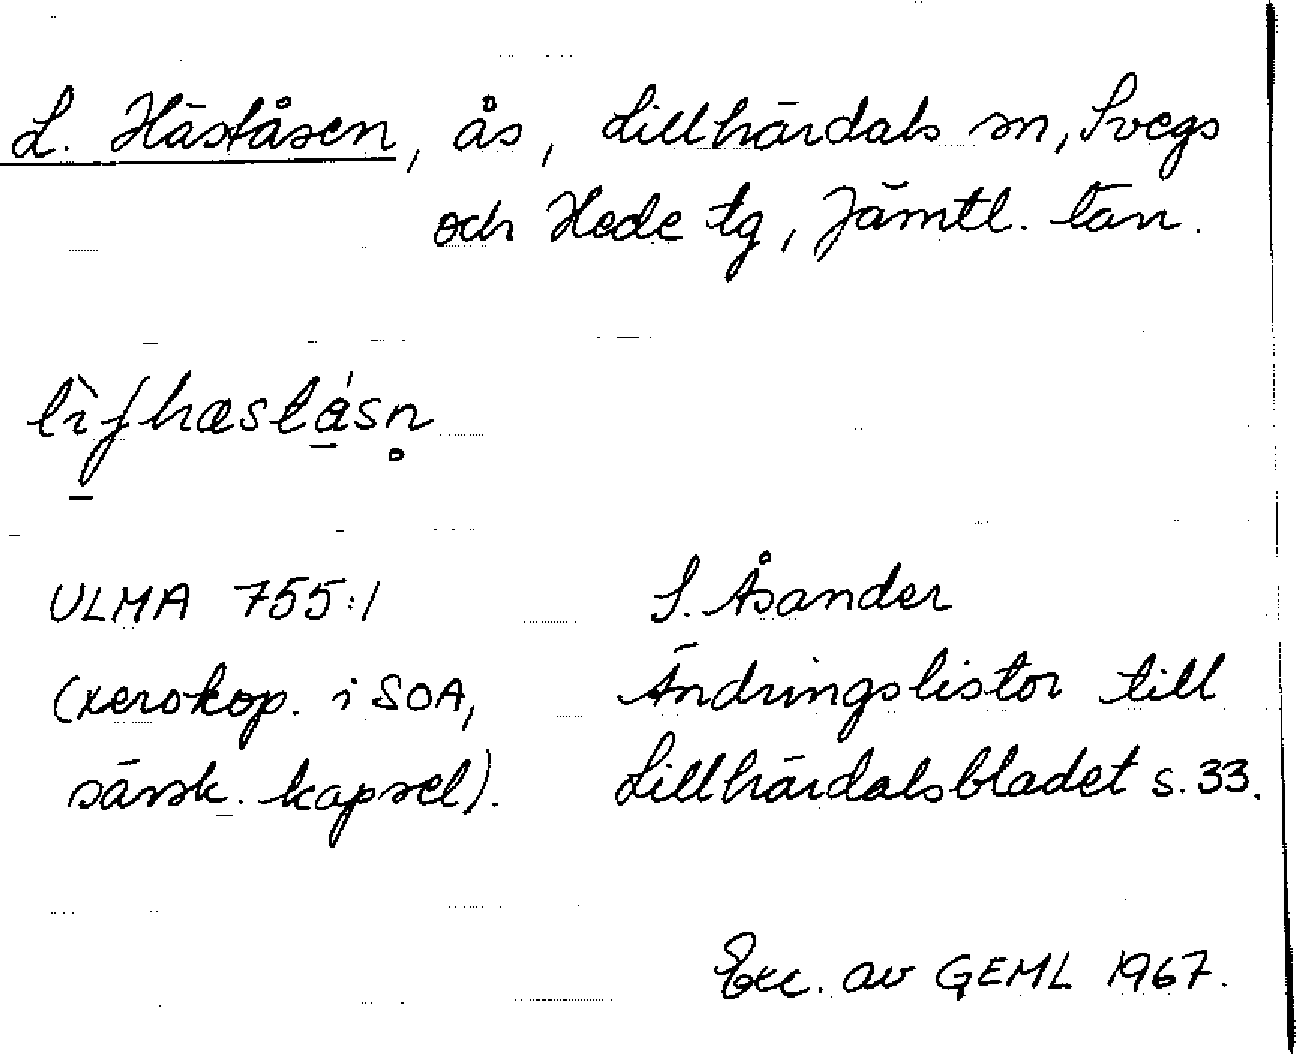 L. Häståsen, ås, Lillhärdals sn, Svegs
och Hede tg, Jämtl. län.
ULMA 755:1
S. Åsander
(xerokop. i SOA,
Ändringslistor till
särsk. kapsel).
Lillhärdalsbladet s. 33.
Exc. av GEML 1967.